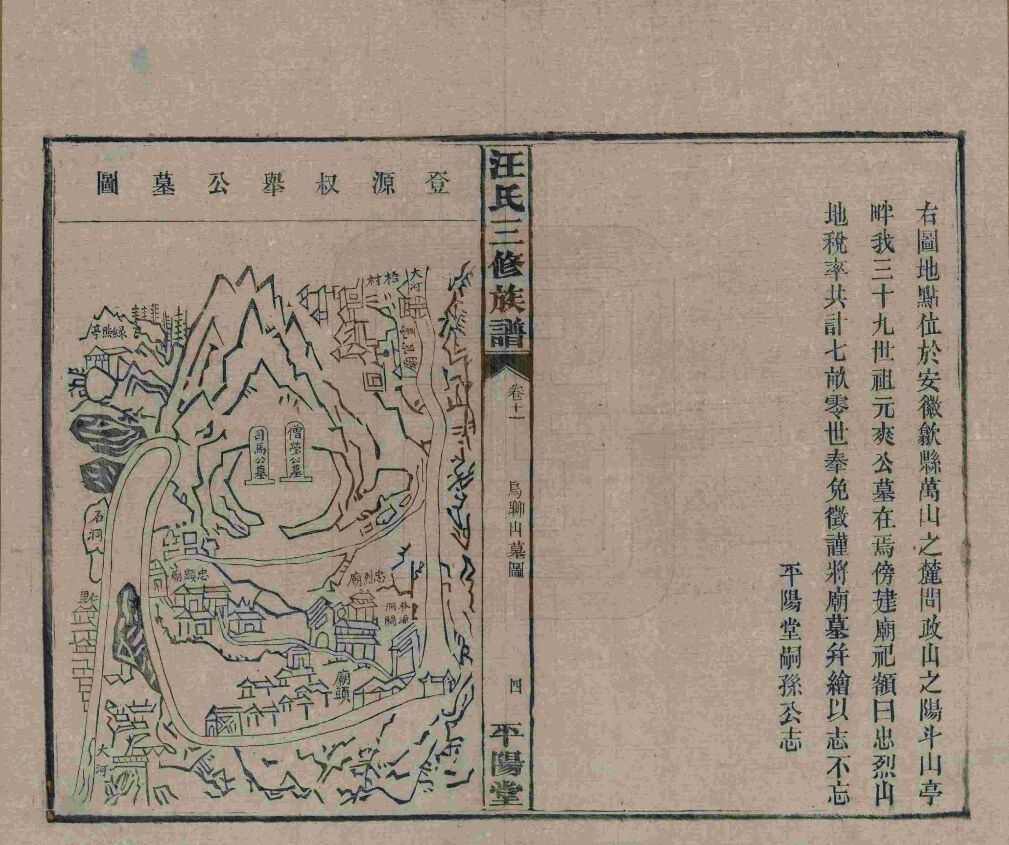 右圖地點位於安徽歙縣萬山之麓問政山之陽斗山亭
畔我三十九世祖元爽公墓在焉傍建廟祀額曰忠烈山
地稅率共計七畝零世奉免徵謹將廟墓并繪以志不忘
平陽堂嗣孫公志
汪氏三修族譜
卷十一
烏聊山墓圖
四
平陽堂
登源叔舉公墓圖
大河
梧村
靈官廟
綠照亭
僧瑩公墓
司馬公墓
石洞
忠顯廟
忠烈廟
登源洞關
廟頭
大河